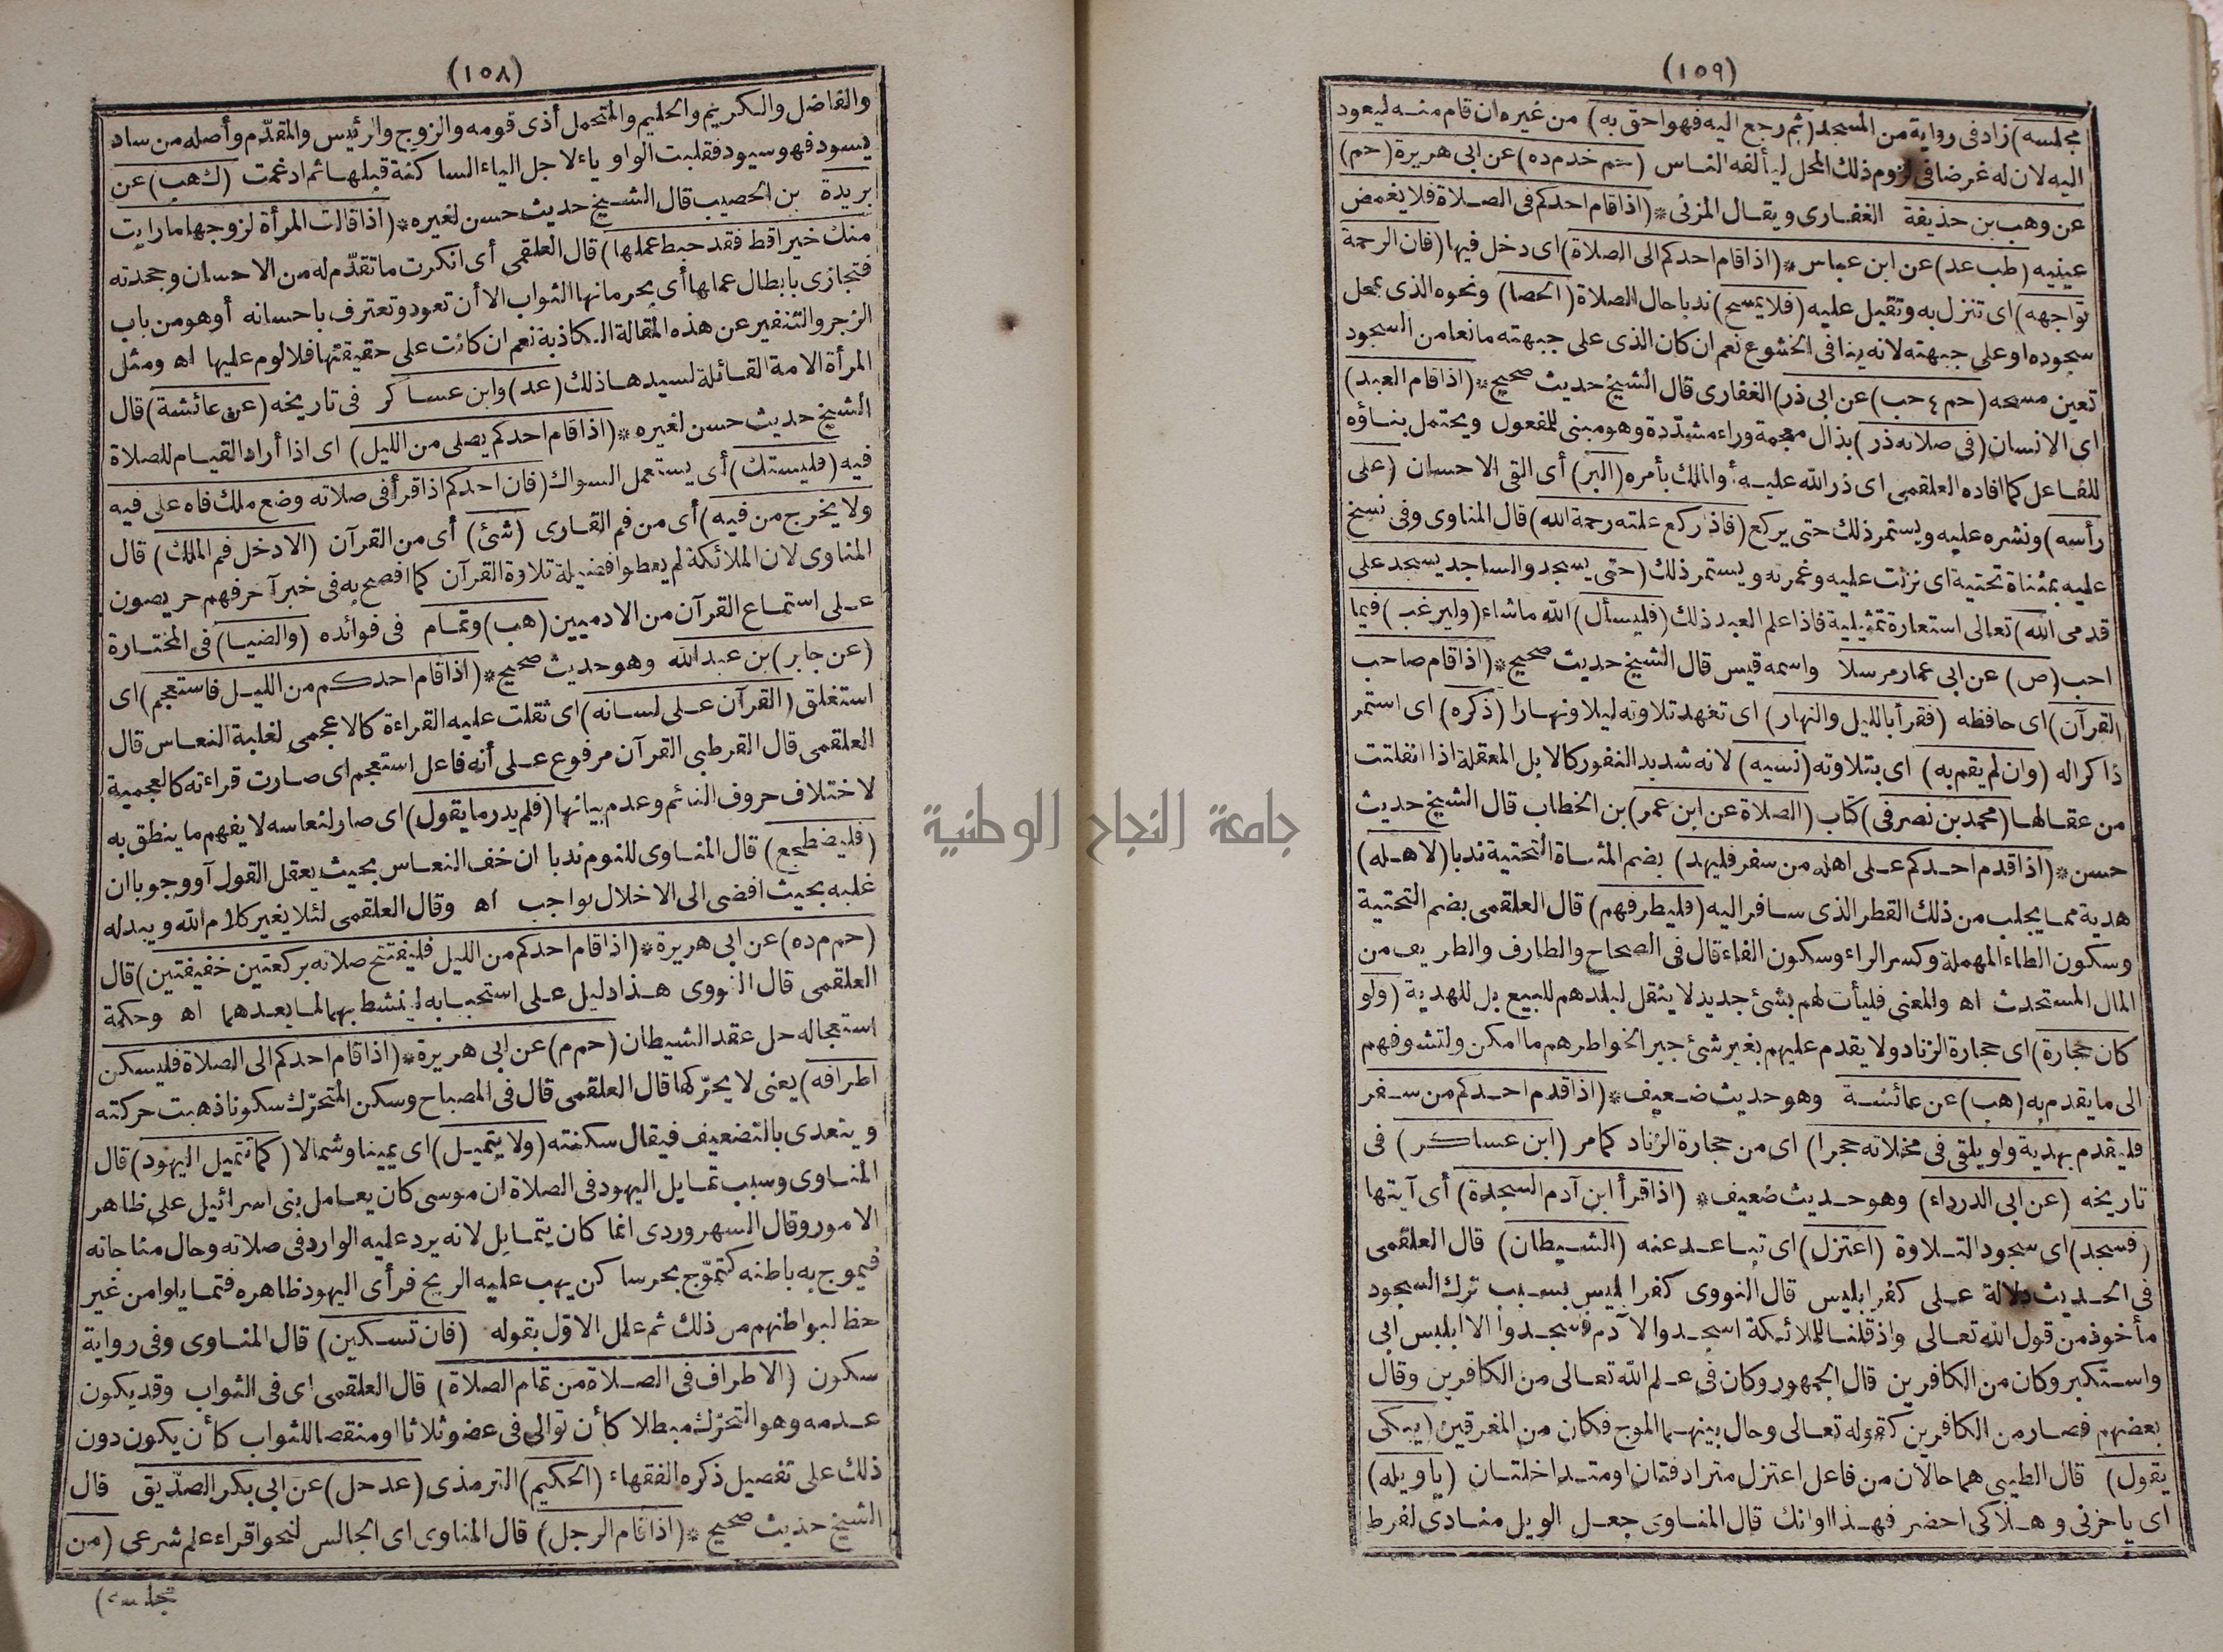 (١٠٨)
والفاضل والكريم والحليم والمتحمل أذى قومه والزوج والرئيس والمقدّم وأصله من ساد
يسود فهو سيود فقلبت الواو ياء لاجل الياء الساكنة قبلها ثم ادغمت (ك هب) عن
بريدة بن الحصيب قال الشيخ حديث حسن لغيره * (اذا قالت المرأة لزوجها ما رايت
منك خيرا قط فقد حبط عملها) قال العلقمي أى انكرت ما تقدّم له من الاحسان وجحدته
فتجازى بابطال عملها أى بحرمانها الثواب الا أن تعود وتعترف باحسانه أو هو من باب
الزجر والتنفير عن هذه المقالة الكاذبة نعم ان كانت على حقيقتها فلا لوم عليها اه ومثل
المرأة الامة القائلة لسيدها ذلك (عد) وابن عساكر فى تاريخه (عن عائشة) قال
الشيخ حديث حسن لغيره * (اذا قام احدكم يصلى من الليل) اى اذا أراد القيام للصلاة
فيه (فليستك) أى يستعمل السواك (فان احدكم اذا قرأ فى صلاته وضع ملك فاه على فيه
ولا يخرج من فيه) أى من فم القارى (شئ) أى من القرآن (الا دخل فم الملك) قال
المناوى لان الملائكة لم يعطوا فضيلة تلاوة القرآن كما افصح به فى خبر آخر فهم حريصون
على استماع القرآن من الادميين (هب) وتمام فى فوائده (والضيا) فى المختارة
(عن جابر) بن عبد الله وهو حديث صحيح * (اذا قام احدكم من الليل فاستعجم) اى
استغلق (القرآن على لسانه) اى ثقلت عليه القراءة كالاعجمى لغلبة النعاس قال
العلقمى قال القرطبى القرآن مرفوع على أنه فاعل استعجم اى صارت قراءته كالعجمية
لاختلاف حروف النائم وعدم بيانها (فلم يدر ما يقول) اى صار لنعاسه لا يفهم ما ينطق به
(فليضطجع) قال المناوى للنوم ندبا ان خف النعاس بحيث يعقل القول أو وجوبا ان
غلبه بحيث افضى الى الاخلال بواجب اه وقال العلقمى لئلا يغير كلام الله ويبدله
(حم م د ه) عن ابى هريرة * (اذا قام احدكم من الليل فليفتتح صلاته بركعتين خفيفتين) قال
العلقمى قال النووى هذا دليل على استحبابه لينشط بهما لما بعدهما اه وحكمة
استعجاله حل عقد الشيطان (حم م) عن ابى هريرة * (اذا قام احدكم الى الصلاة فليسكن
اطرافه) يعنى لا يحرّكها قال العلقمى قال فى المصباح وسكن المتحرّك سكونا ذهبت حركته
ويتعدى بالتضعيف فيقال سكنته (ولا يتميل) اى يمينا وشمالا (كما تتميل اليهود) قال
المناوى وسبب تمايل اليهود فى الصلاة ان موسى كان يعامل بنى اسرائيل على ظاهر
الامور وقال السهروردى انما كان يتمايل لانه يرد عليه الوارد فى صلاته وحال مناجاته
فيموج به باطنه كتموّج بحر ساكن يهب عليه الريح فرأى اليهود ظاهره فتمايلوا من غير
حظ لبواطنهم من ذلك ثم علل الاوّل بقوله (فان تسكين) قال المناوى وفى رواية
سكون (الاطراف فى الصلاة من تمام الصلاة) قال العلقمى اى فى الثواب وقد يكون
عدمه وهو التحرّك مبطلا كأن توالى فى عضو ثلاثا او منقصا للثواب كأن يكون دون
ذلك على تفصيل ذكره الفقهاء (الحكيم) الترمذى (عد حل) عن ابى بكر الصدّيق قال
الشيخ حديث صحيح * (اذا قام الرجل) قال المناوى اى الجالس لنحو اقراء علم شرعى (من
مجلسه)
(١٠٩)
مجلسه) زاد فى رواية من المسجد (ثم رجع اليه فهو احق به) من غيره ان قام منه ليعود
اليه لان له غرضا فى لزوم ذلك المحل ليألفه الناس (حم خدم ده) عن ابى هريرة (حم)
عن وهب بن حذيفة الغفارى ويقال المزنى * (اذا قام احدكم فى الصلاة فلا يغمض
عينيه (طب عد) عن ابن عباس * (اذا قام احدكم الى الصلاة) اى دخل فيها (فان الرحمة
تواجهه) اى تنزل به وتقبل عليه (فلا يمسح) ندبا حال الصلاة (الحصا) ونحوه الذى بمحل
سجوده او على جبهته لانه ينافى الخشوع نعم ان كان الذى على جبهته مانعا من السجود
تعين مسحه (حم ٤ حب) عن ابى ذر) الغفارى قال الشيخ حديث صحيح * (اذا قام العبد)
اى الانسان (فى صلاته ذر) بذال معجمة وراء مشدّدة وهو مبنى للمفعول ويحتمل بناؤه
للفاعل كما افاده العلقمى اى ذر الله عليه أو الملك بأمره (البر) أى القى الاحسان (على
رأسه) ونشره عليه ويستمر ذلك حتى يركع (فاذا ركع علته رحمة الله) قال المناوى وفى نسخ
عليه بمثناة تحتية اى نزلت عليه وغمرته ويستمر ذلك (حتى يسجد والساجد يسجد على
قدمى الله) تعالى استعارة تمثيلية فاذا علم العبد ذلك (فليسأل) الله ما شاء (وليرغب) فيما
احب (ص) عن ابى عمار مرسلا واسمه قيس قال الشيخ حديث صحيح * (اذا قام صاحب
القرآن) اى حافظه (فقرأ بالليل والنهار) اى تعهد تلاوته ليلا ونهارا (ذكره) اى استمر
ذاكرا له (وان لم يقم به) اى بتلاوته (نسيه) لانه شديد النفور كالابل المعقلة اذا انفلتت
من عقالها (محمد بن نصر فى) كتاب (الصلاة عن ابن عمر) بن الخطاب قال الشيخ حديث
حسن * (اذا قدم احدكم على اهله من سفر فليهد) بضم المثناة التحتية ندبا (لاهله)
هدية مما يجلب من ذلك القطر الذى سافر اليه (فليطرفهم) قال العلقمى بضم التحتية
وسكون الطاء المهملة وكسر الراء وسكون الفاء قال فى الصحاح والطارف والطريف من
المال المستحدث اه والمعنى فليأت لهم بشئ جديد لا ينقل لبلدهم للبيع بل للهدية (ولو
كان حجارة) اى حجارة الزناد ولا يقدم عليهم بغير شئ جبرا لخواطرهم ما امكن ولتشوفهم
الى ما يقدم به (هب) عن عائشة وهو حديث ضعيف * (اذا قدم احدكم من سفر
فليقدم بهدية ولو يلقى فى مخلاته حجرا) اى من حجارة الزناد كما مر (ابن عساكر) فى
تاريخه (عن ابى الدرداء) وهو حديث ضعيف * (اذا قرأ ابن آدم السجدة) أى آيتها
(فسجد) اى سجود التلاوة (اعتزل) اى تباعد عنه (الشيطان) قال العلقمى
فى الحديث دلالة على كفر ابليس قال النووى كفر ابليس بسبب ترك السجود
مأخوذ من قول الله تعالى واذ قلنا للملائكة اسجدوا لآدم فسجدوا الا ابليس ابى
واستكبر وكان من الكافرين قال الجمهور وكان فى علم الله تعالى من الكافرين وقال
بعضهم فصار من الكافرين كقوله تعالى وحال بينهما الموج فكان من المغرقين (يبكى
يقول) قال الطيبى هما حالان من فاعل اعتزل مترادفتان او متداخلتان (يا ويله)
اى يا حزنى وهلاكى احضر فهذا اوانك قال المناوى جعل الويل منادى لفرط
جامعة النجاح الوطنية